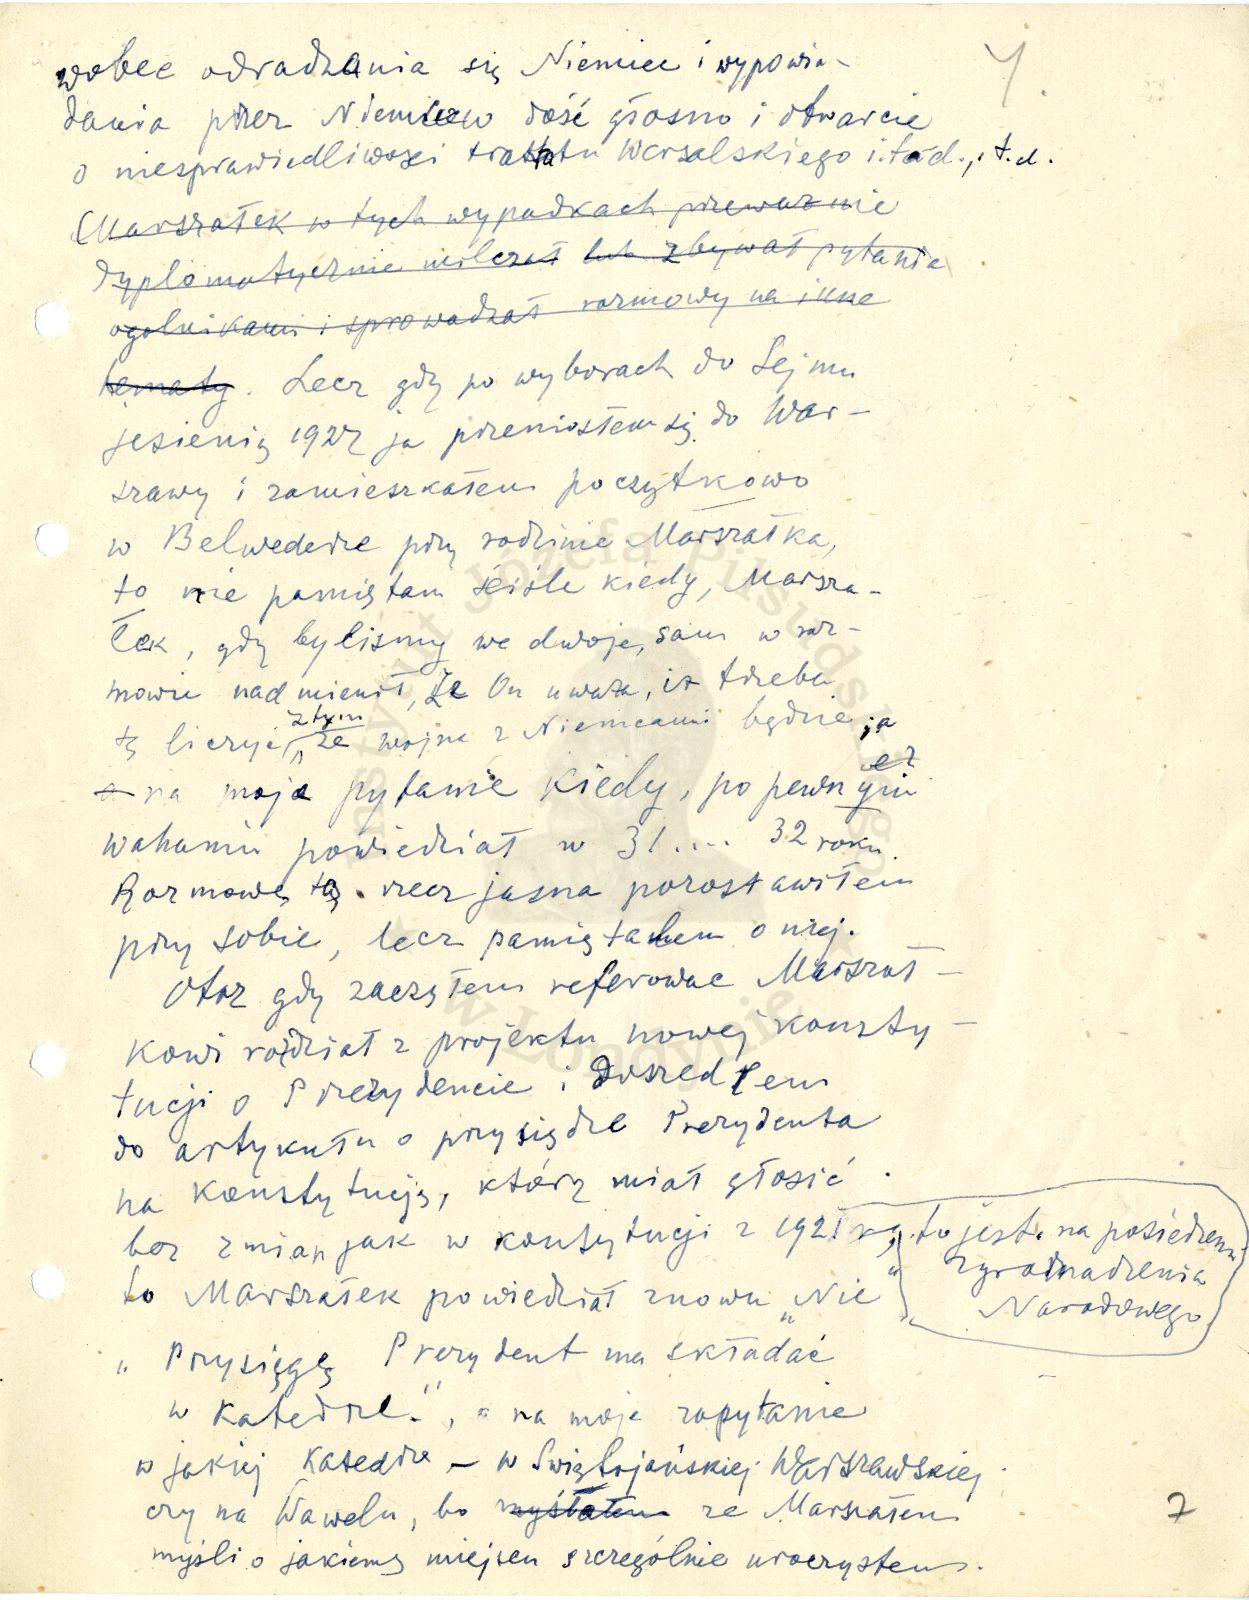 wobec odradzania się Niemiec i wypowia-
dania przez Niemców dość głosno i otwarcie
o niesprawiedliwości traktatu Wersalskiego i.t.d., i t.d.
(Marszałek w tych wypadkach przeważnie
dyplomatycznie milczał lub zbywał pytania
ogolnikami i sprowadzał rozmowy na inne
tematy. Lecz gdy po wyborach do Sejmu
jesienią 1927 ja przeniosłem się do War-
szawy i zamieszkałem początkowo
w Belwederze przy rodzinie Marszałka,
to nie pamiętam ściśle kiedy, Marsza-
łek, gdy bylismy we dwoje, sam w roz-
mowie nadmienił, że On uważa, iż trzeba
się liczyć z tym że wojna z Niemcami będzie, a
na moje pytanie kiedy, po pewnym
wahaniu powiedział w 31.... 32 roku.
Rozmowę tą rzecz jasna pozostawiłem
przy sobie, lecz pamiętałem o niej.
Otoz gdy zacząłem referowac Marszał-
kowi rozdział z projektu nowej konsty-
tucji o Prezydencie i doszedłem
do artykułu o przysiędze Prezydenta
na Konstytucję, którą miał głosić
bez zmian jak w konstytucji z 1921 r.,
to jest. na posiedzeniu
Zgromadzenia
Narodowego
to Marszałek powiedział znowu „Nie"
„Przysięgę Prezydent ma składać
w Katedrze.", a na moje zapytanie
w jakiej Katedrze – w Świętojańskiej Warszawskiej
czy na Wawelu, bo myślałem ze Marszałem
myśli o jakiemś miejscu szczególnie uroczystem.
7
Instytut Józefa Piłsudskiego
w Londynie